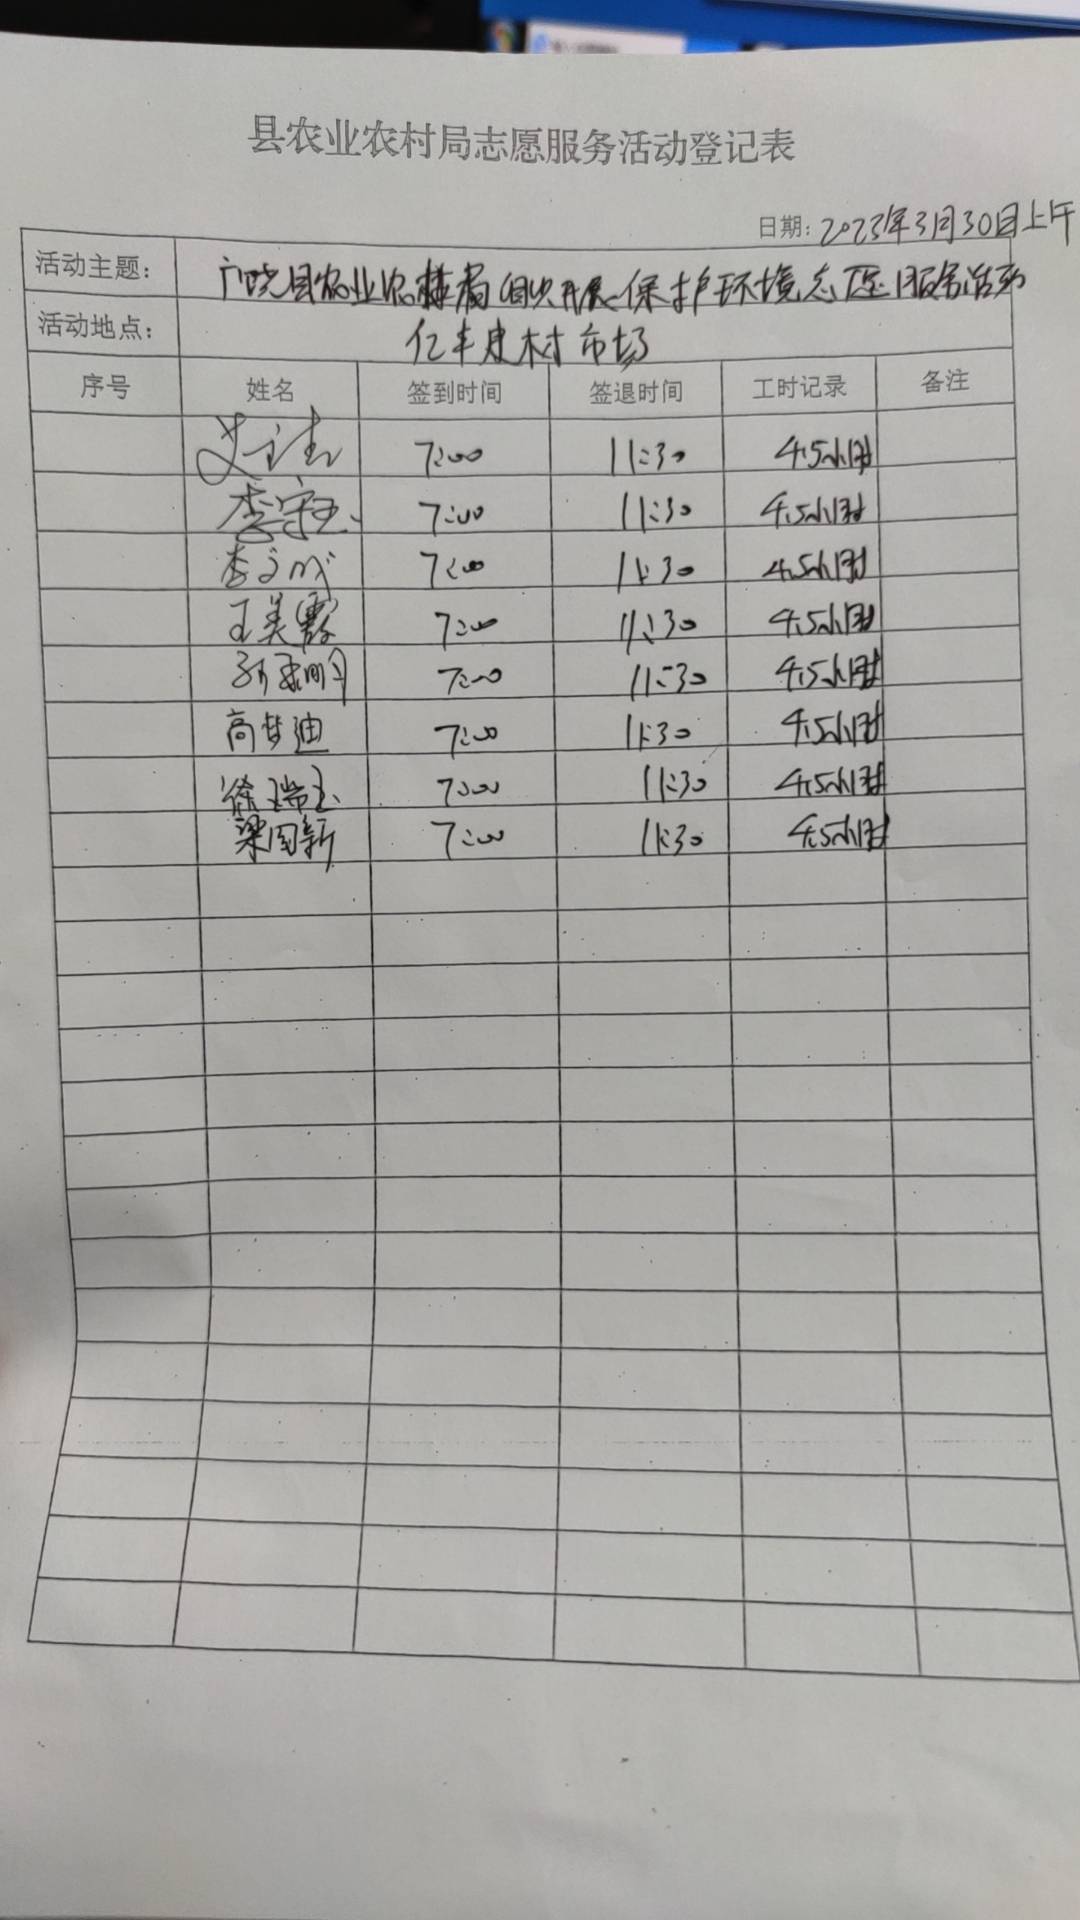 县农业农村局志愿服务活动登记表
日期: 2023年3月30日上午
活动主题: 广饶县农业农村局组织开展保护环境志愿服务活动
活动地点: 亿丰建材市场
序号 姓名 签到时间 签退时间 工时记录 备注
7:00 11:30 4.5小时
7:00 11:30 4.5小时
李文成 7:00 11:30 4.5小时
王美霞 7:00 11:30 4.5小时
7:00 11:30 4.5小时
高梦迪 7:00 11:30 4.5小时
徐瑞玉 7:00 11:30 4.5小时
梁国新 7:00 11:30 4.5小时